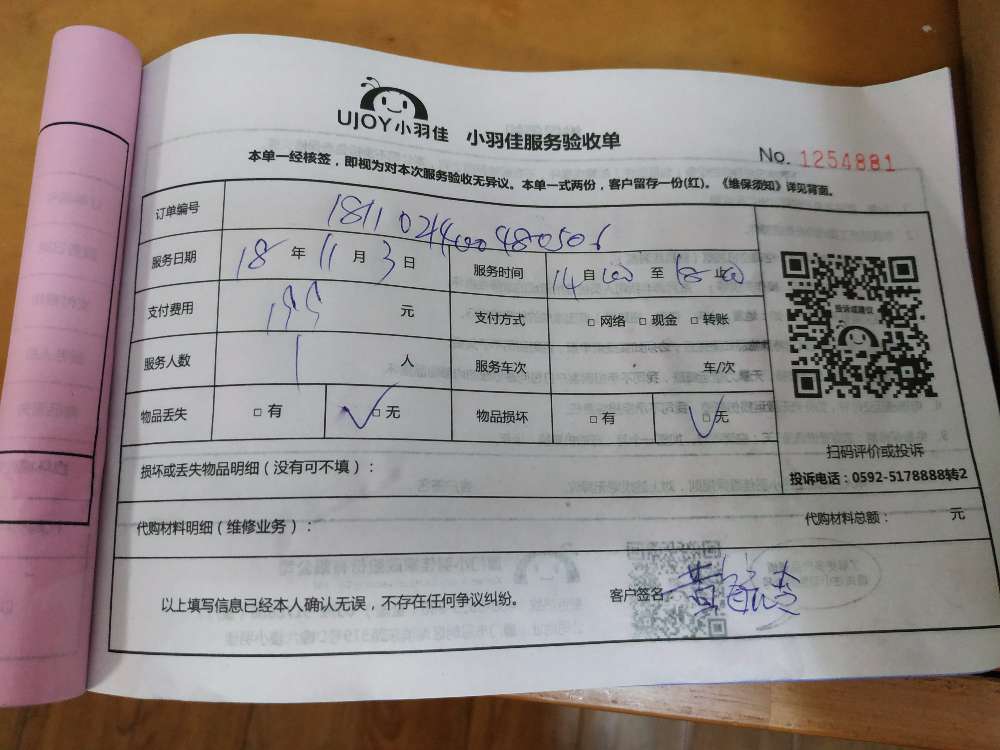 UJOY小羽佳 小羽佳服务验收单
No. 1254881
本单一经核签，即视为对本次服务验收无异议。本单一式两份，客户留存一份(红)。《维保须知》详见背面。
订单编号
服务日期 18 年 11 月 3 日 服务时间 14 自 00 至 18 止 00
支付费用 元 支付方式 □ 网络 □ 现金 □ 转账
服务人数 1 人 服务车次 车/次
物品丢失 □ 有 □ 无 物品损坏 □ 有 □ 无
投诉或建议
扫码评价或投诉
投诉电话：0592-5178888转2
损坏或丢失物品明细（没有可不填）：
代购材料明细（维修业务）： 代购材料总额： 元
以上填写信息已经本人确认无误，不存在任何争议纠纷。 客户签名